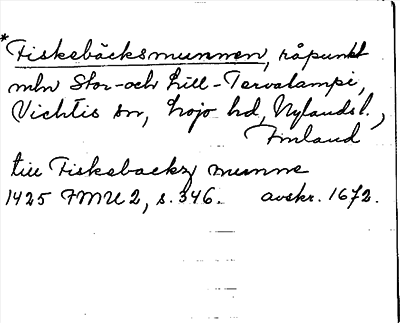 *Fiskebäcksmunnen, råpunkt
mln Stor- och Lill-Tervalampi,
Vichtis sn, Lojo hd, Nylandsl.,
Finland
till Fiskebackz munne
1425 FMU 2, s. 346. avskr. 1672.